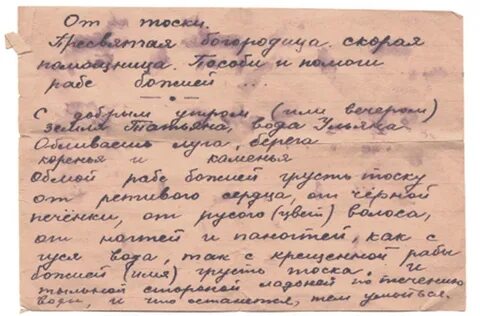 От тоски.
Пресвятая богородица. скорая
помощница. Пособи и помоги
рабе божией ...
С добрым утром (или вечером)
земля Татьяна, вода Ульяна
Обливаешь луга, берега
коренья и каменья
Обмой рабе божией грусть тоску
от ретивого сердца, от чёрной
печёнки, от русого (цвет) волоса,
от ногтей и паногтей, как с
гуся вода, так с крещенной рабы
божией (имя) грусть тоска. и
тыльной стороной ладоней по течению
воды, и что останется, тем умыться.